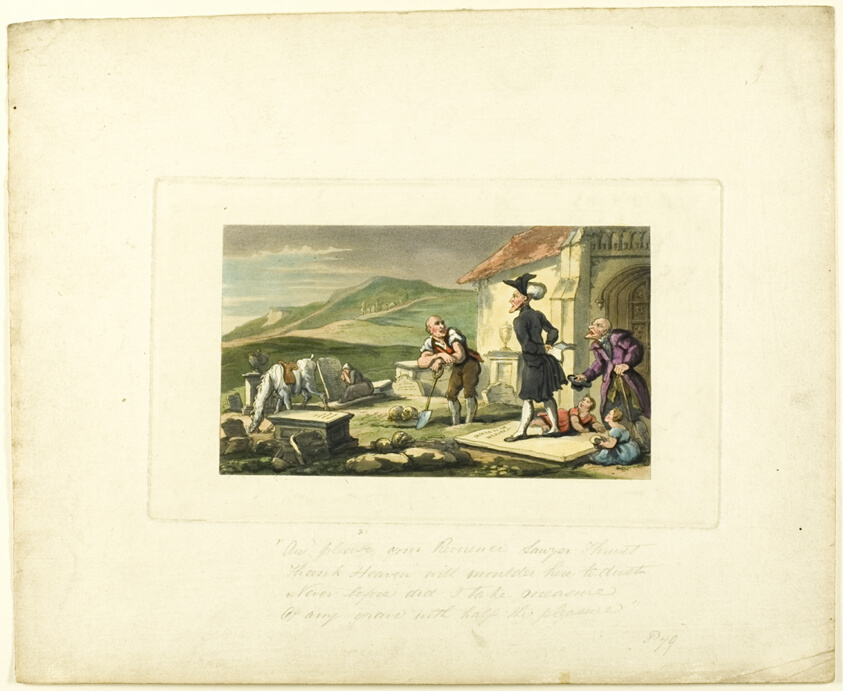 "An' please your Reverence Lawyer Thrust
Thank Heaven will moulder here to dust
Never before did I take measure
Of any grave with half the pleasure"
P 79